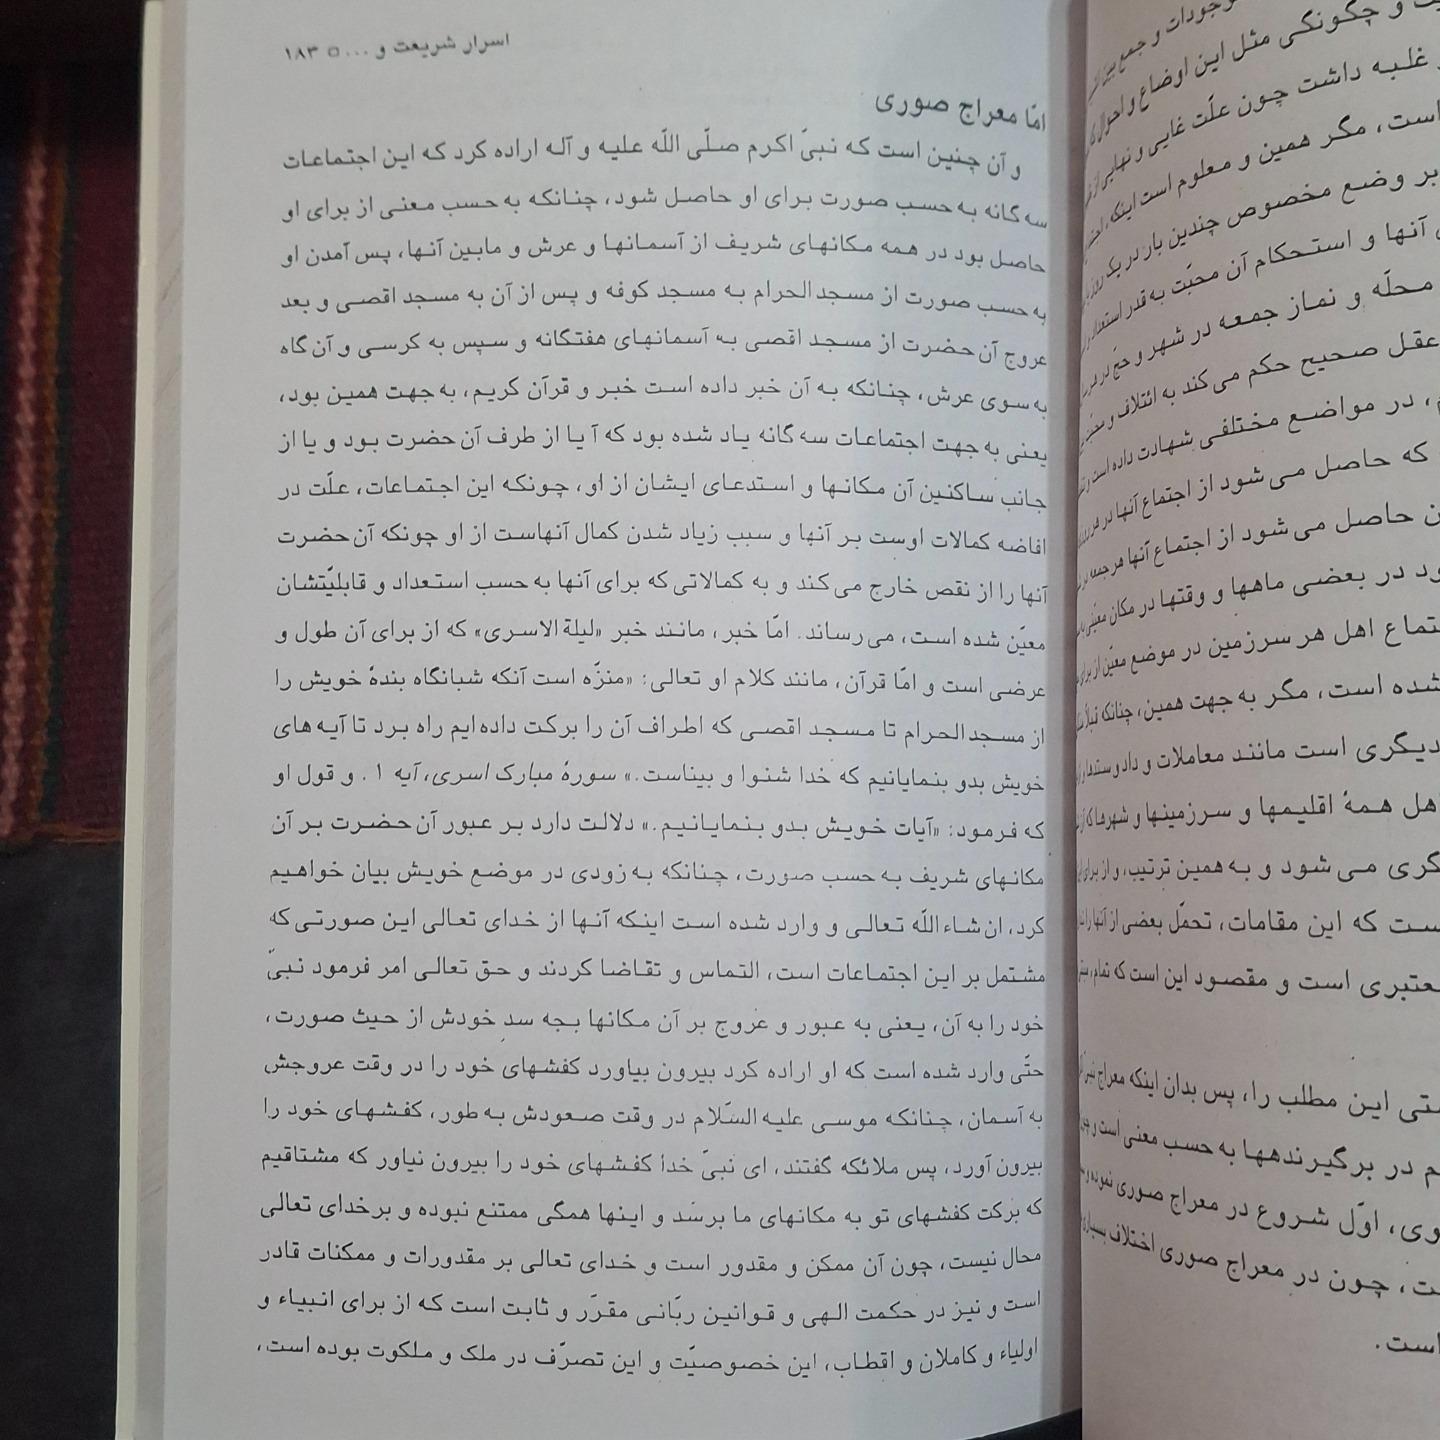 اسرار شریعت و ... □ ۱۸۳
امّا معراج صوری
و آن چنین است که نبیّ اکرم صلّی اللّه علیه و آله اراده کرد که این اجتماعات
سه گانه به حسب صورت برای او حاصل شود، چنانکه به حسب معنی از برای او
حاصل بود در همه مکانهای شریف از آسمانها و عرش و مابین آنها، پس آمدن او
به حسب صورت از مسجدالحرام به مسجد کوفه و پس از آن به مسجد اقصی و بعد
عروج آن حضرت از مسجد اقصی به آسمانهای هفتگانه و سپس به کرسی و آن گاه
به سوی عرش، چنانکه به آن خبر داده است خبر و قرآن کریم، به جهت همین بود،
یعنی به جهت اجتماعات سه گانه یاد شده بود که آیا از طرف آن حضرت بود و یا از
جانب ساکنین آن مکانها و استدعای ایشان از او، چونکه این اجتماعات، علّت در
افاضه کمالات اوست بر آنها و سبب زیاد شدن کمال آنهاست از او چونکه آن حضرت
آنها را از نقص خارج می کند و به کمالاتی که برای آنها به حسب استعداد و قابلیّتشان
معیّن شده است، می رساند. امّا خبر، مانند خبر «لیلة الاسری» که از برای آن طول و
عرضی است و امّا قرآن، مانند کلام او تعالی: «منزّه است آنکه شبانگاه بندهٔ خویش را
از مسجدالحرام تا مسجد اقصی که اطراف آن را برکت داده ایم راه برد تا آیه های
خویش بدو بنمایانیم که خدا شنوا و بیناست.» سورهٔ مبارک اسری، آیه ۱. و قول او
که فرمود: «آیات خویش بدو بنمایانیم.» دلالت دارد بر عبور آن حضرت بر آن
مکانهای شریف به حسب صورت، چنانکه به زودی در موضع خویش بیان خواهیم
کرد، ان شاءاللّه تعالی و وارد شده است اینکه آنها از خدای تعالی این صورتی که
مشتمل بر این اجتماعات است، التماس و تقاضا کردند و حق تعالی امر فرمود نبیّ
خود را به آن، یعنی به عبور و عروج بر آن مکانها بجه سد خودش از حیث صورت،
حتّی وارد شده است که او اراده کرد بیرون بیاورد کفشهای خود را در وقت عروجش
به آسمان، چنانکه موسی علیه السّلام در وقت صعودش به طور، کفشهای خود را
بیرون آورد، پس ملائکه گفتند، ای نبیّ خدا کفشهای خود را بیرون نیاور که مشتاقیم
که برکت کفشهای تو به مکانهای ما برسد و اینها همگی ممتنع نبوده و برخدای تعالی
محال نیست، چون آن ممکن و مقدور است و خدای تعالی بر مقدورات و ممکنات قادر
است و نیز در حکمت الهی و قوانین ربّانی مقرّر و ثابت است که از برای انبیاء و
اولیاء و کاملان و اقطاب، این خصوصیّت و این تصرّف در ملک و ملکوت بوده است،
وجودات و جمع بین
و چگونگی مثل این اوضاع و احوال
غلبه داشت چون علّت غایی و نهایی از
است، مگر همین و معلوم است اینکه،
بر وضع مخصوص چندین بار در یک روز
آنها و استحکام آن محبّت به قدر استعداد
محلّه و نماز جمعه در شهر و حجّ در
عقل صحیح حکم می کند به ائتلاف و
، در مواضع مختلفی شهادت داده است
که حاصل می شود از اجتماع آنها در هر
حاصل می شود از اجتماع آنها هر جمعه
در بعضی ماهها و وقتها در مکان معیّنی
اهل هر سرزمین در موضع معیّن از برای
شده است، مگر به جهت همین، چنانکه قبلاً
دیگری است مانند معاملات و داد وستدها
همهٔ اقلیمها و سرزمینها و شهرها که از
می شود و به همین ترتیب، و از برای
که این مقامات، تحمّل بعضی از آنها را
است و مقصود این است که تمام،
این مطلب را، پس بدان اینکه معراج نبیّ
در برگیرندهها به حسب معنی است و
اوّل شروع در معراج صوری نموده و
چون در معراج صوری اختلاف بسیار
است.